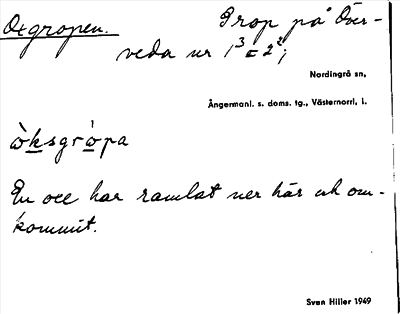 Oxgropen. Grop på Över-
veda nr 1³ c 2²;
Nordingrå sn,
Ångermanl. s. doms. tg., Västernorrl. l.
òksgròpa
En oxe har ramlat ner här och om-
kommit.
Sven Hiller 1949